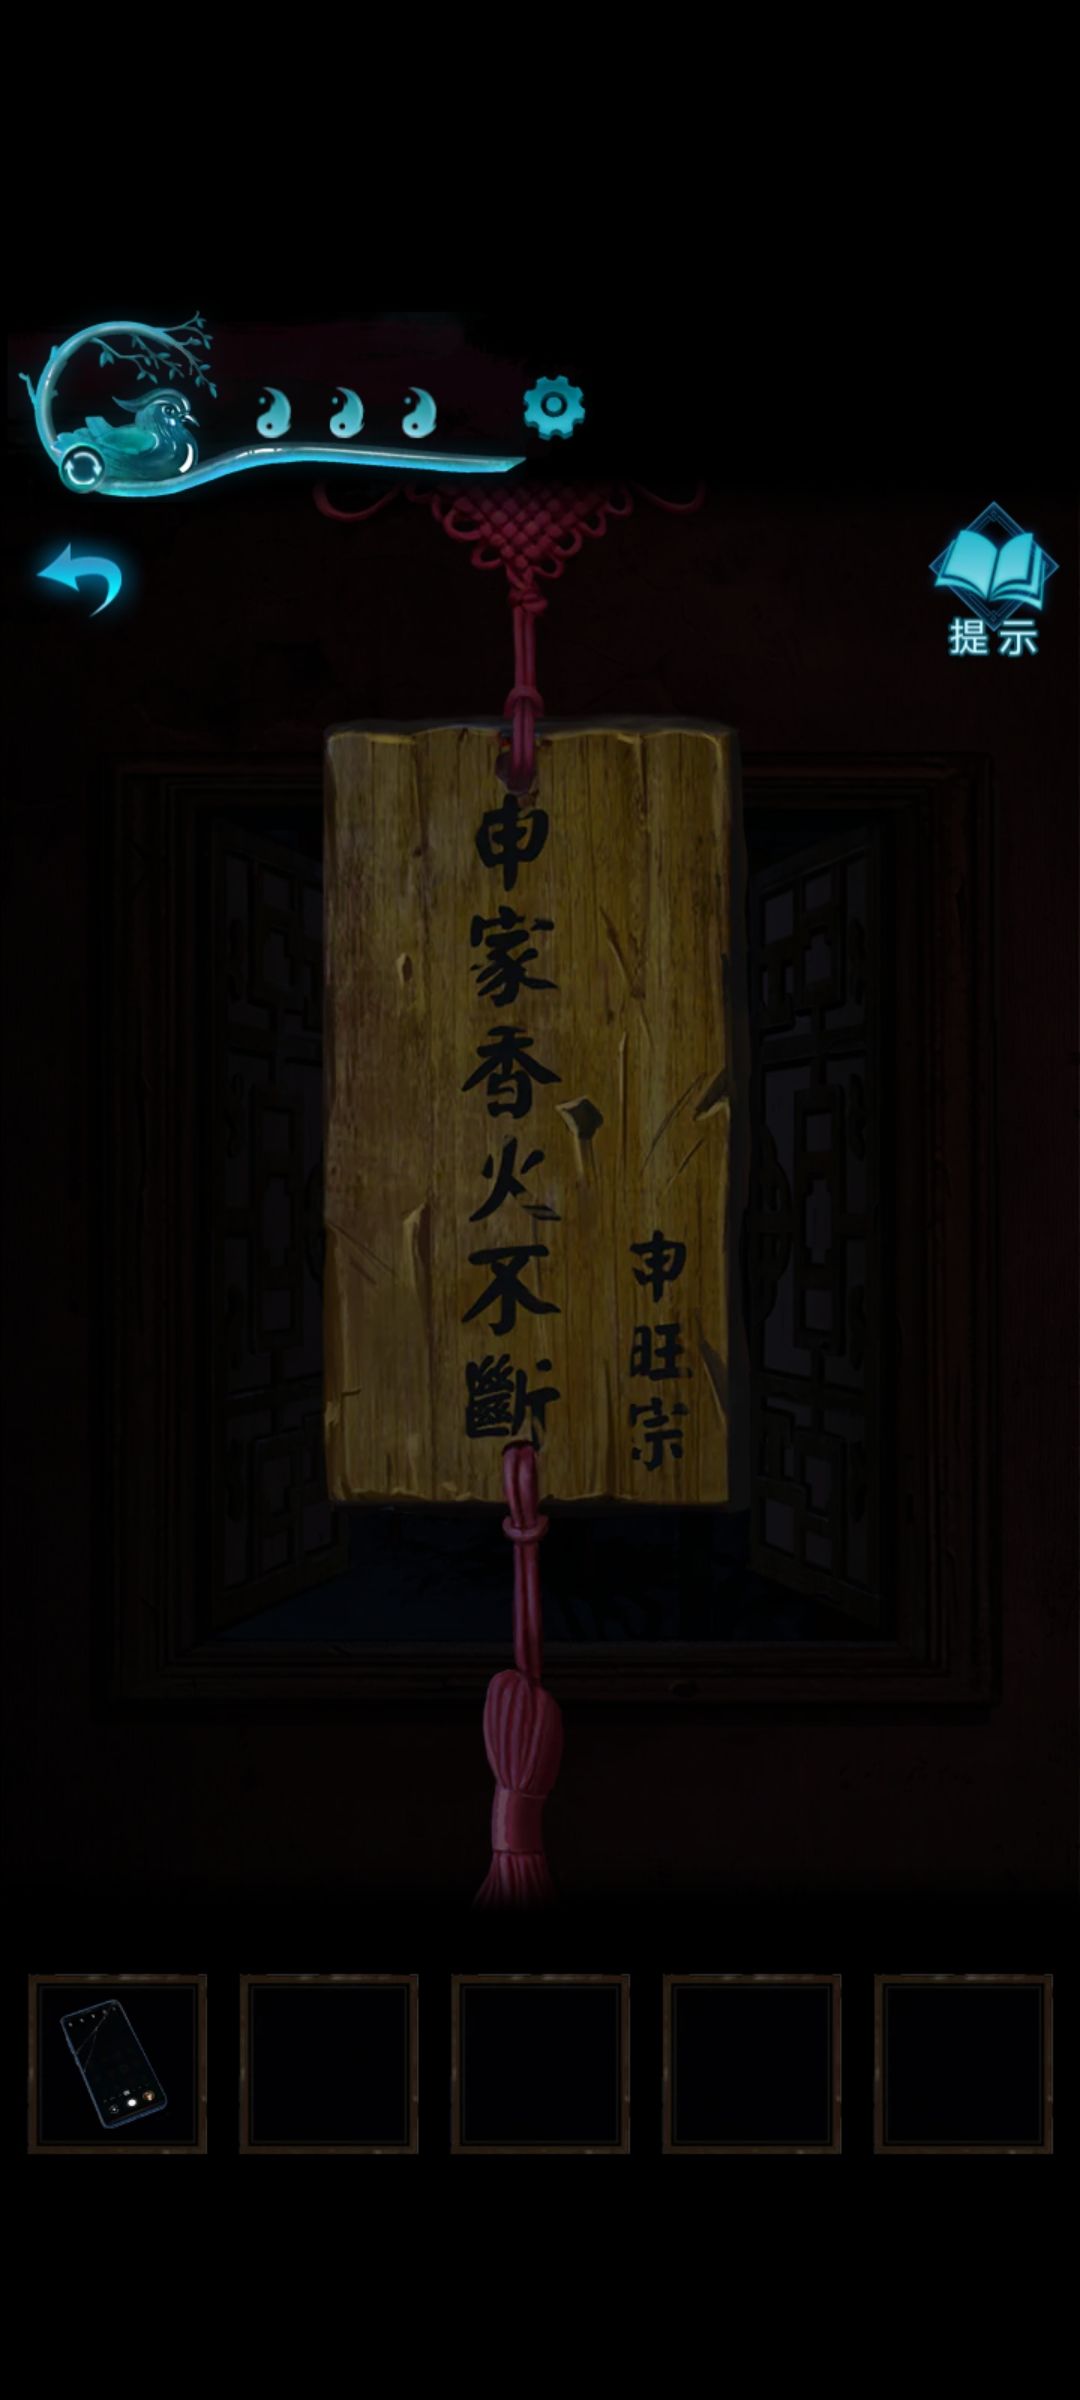 提示
申家香火不斷
申旺宗